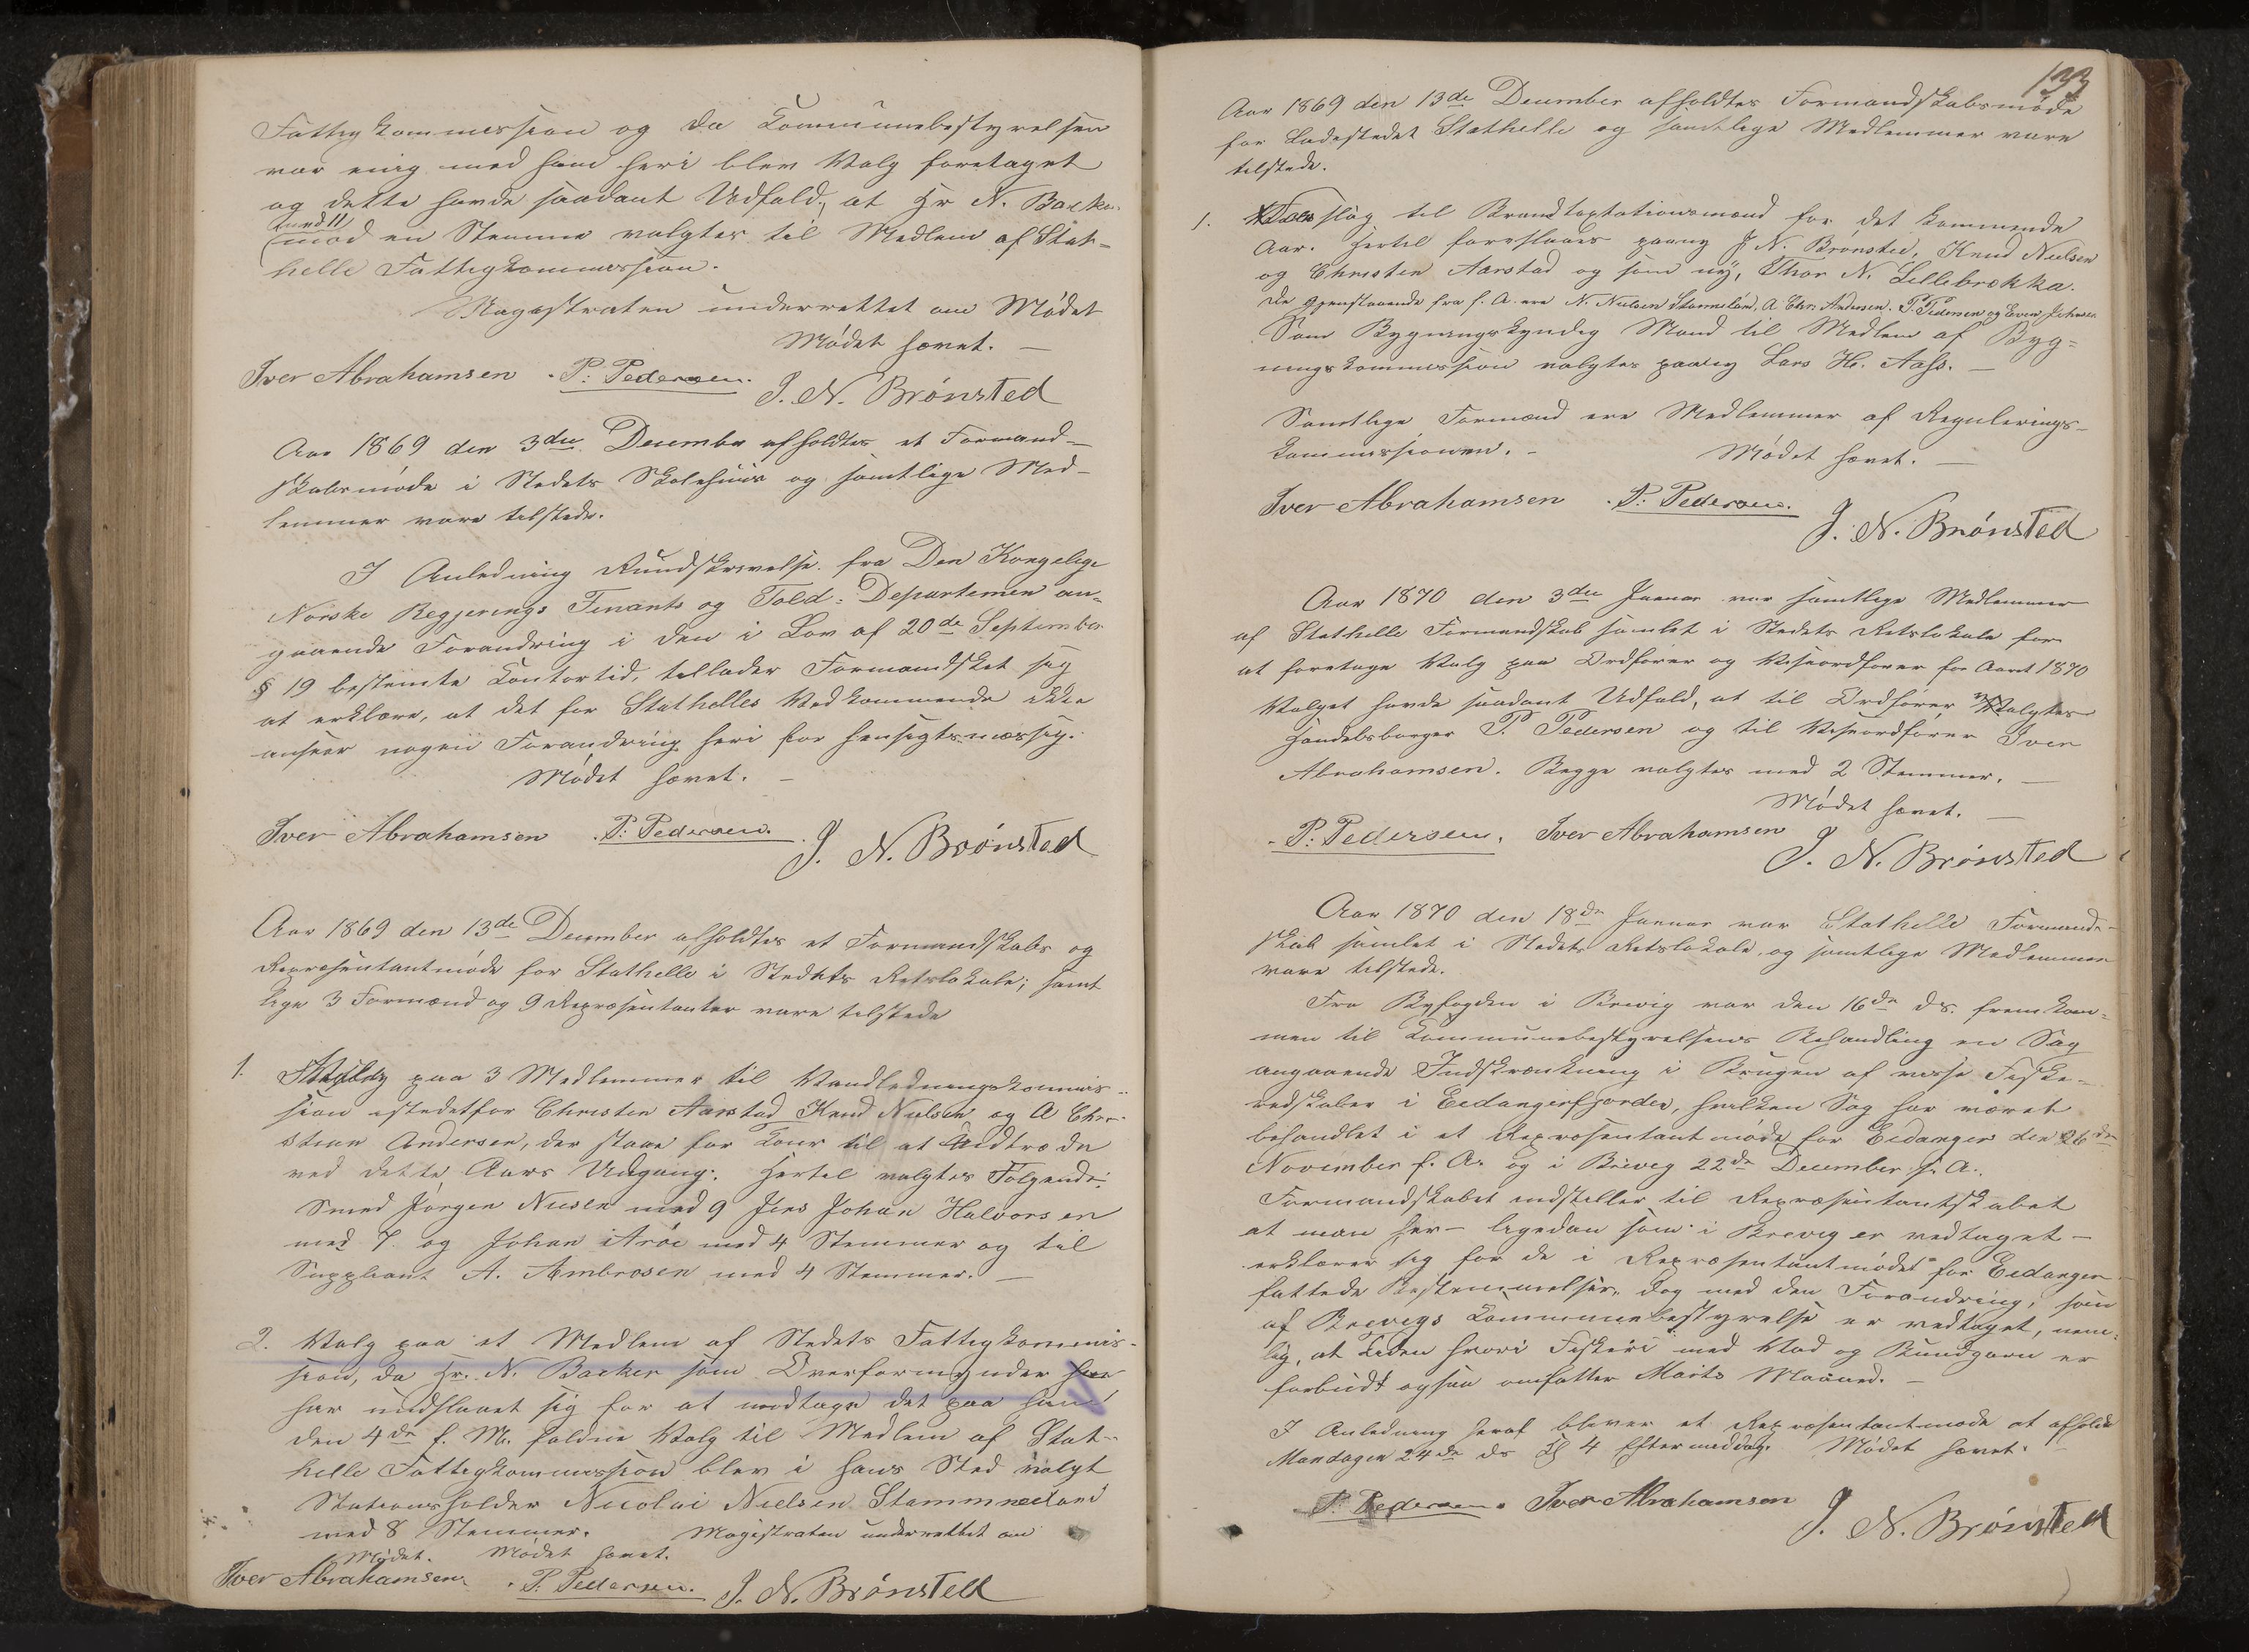 Fattigkommission og da Kommunebestyrelsen
var enig med ham heri blev Valg foretaget
og dette havde saadant Udfald, at Hr N. Backer
med 11
mod en Stemme valgtes til Medlem af Stat-
helle Fattigkommission.
Magistraten underrettet om Mødet
Mødet hævet. —
Iver Abrahamsen P: Pedersen. J. N. Brønsted
Aar 1869 den 3die December afholdtes et Formand-
skabsmøde i Stedets Skolehuus og samtlige Med-
lemmer vare tilstede.
I Anledning Rundskrivelse fra Den Kongelige
Norske Regjerings Finants og Told-Departement an-
gaaende Forandring i den i Lov af 20de September
§ 19 bestemte Contortid, tillader Formandsket sig
at erklære, at det for Stathelles Vedkommende ikke
anseer nogen Forandring heri for hensigtsmæssig.
Mødet hævet. —
Iver Abrahamsen P: Pedersen. J. N. Brønsted
Aar 1869 den 13de December afholdtes et Formandskabs og
Repræsentantmøde for Stathelle i Stedets Retslokale; samt
lige 3 Formænd og 9 Repræsentanter vare tilstede
1. Valg paa 3 Medlemmer til Vandledningskommis-
sion istedetfor Christen Aarstad Knud Nielsen og A Chri-
stian Andersen, der staae for Tour til at Udtræde
ved dette Aars Udgang. Hertil valgtes Følgende:
Smed Jørgen Niesen med 9 Jens Johan Halvorsen
med 7 og Johan Arøe med 4 Stemmer og til
Suppleant A. Ambrosen med 4 Stemmer. —
2. Valg paa et Medlem af Stedets Fattigkommis-
sion, da Hr. N. Backer som Overformynder
har undslaaet sig for at modtage det paa ham
den 4de f. M. faldne Valg til Medlem af Stat-
helle Fattigkommission blev i hans Sted valgt
Stationsholder Nicolai Nielsen
med 8 Stemmer. Magistraten underrettet om
Mødet. Mødet hævet.
Iver Abrahamsen P. Pedersen. J. N. Brønsted
133
Aar 1869 den 13de December afholdtes Formandskabsmøde
for Ladestedet Stathelle og samtlige Medlemmer vare
tilstede.
1. Forslag til Brandtaxtationsmænd for det kommende
Aar. Hertil foreslaaes paany J N. Brønsted, Knud Nielsen
og Christen Aarstad og som ny, Thor N. Lillebrækka.
De gjenstaaende fra f. A. ere N. Nielsen Stammeland, A. Chr. Andersen, P. Pedersen og Even Johnsen
Som Bygningskyndig Mand til Medlem af Byg-
ningskommission valgtes paany Lars Hr. Aass. —
Samtlige Formænd ere Medlemmer af Regulerings-
kommissionen. — Mødet hævet. —
Iver Abrahamsen P: Pedersen. J. N. Brønsted
Aar 1870 den 3die Januar var samtlige Medlemmer
af Stathelle Formandskab samlet i Stedets Retslokale for
at foretage Valg paa Ordfører og Viseordfører for Aaret 1870
Valget havde saadant Udfald, at til Ordfører valgtes
Handelsborger P. Pedersen og til Viseordfører Iver
Abrahamsen. Begge valgtes med 2 Stemmer. —
Mødet hævet. —
P: Pedersen, Iver Abrahamsen J. N. Brønsted
Aar 1870 den 18de Januar var Stathelle Formand-
skab samlet i Stedets Retslokale, og samtlige Medlemmer
vare tilstede.
Fra Byfogden i Brevig var den 16de ds. fremkom-
men til Kommunebestyrelsens Behandling en Sag
angaaende Indskrænkning i Brugen af visse Fiske-
redskaber i Eidangerfjorden, hvilken Sag har været
behandlet i et Repræsentantmøde for Eidanger den 26de
November f. A. og i Brevig 22de December f. A.
Formandskabet indstiller til Repræsentantskabet
at man her — ligedan som i Brevig er vedtaget —
erklærer sig for de i Repræsentantmødet for Eidanger
fattede Bestemmelser, dog med den Forandring, som
af Brevigs Kommunebestyrelse er vedtaget, nem-
lig, at Tiden hvori Fiskeri med Vad og Bundgarn er
forbudt ogsaa omfatter Marts Maaned. —
I Anledning heraf bliver et Repræsentantmøde at afholde
Mandagen 24de ds Kl 4 Eftermiddag. Mødet hævet.
P. Pedersen. Iver Abrahamsen J. N. Brønsted